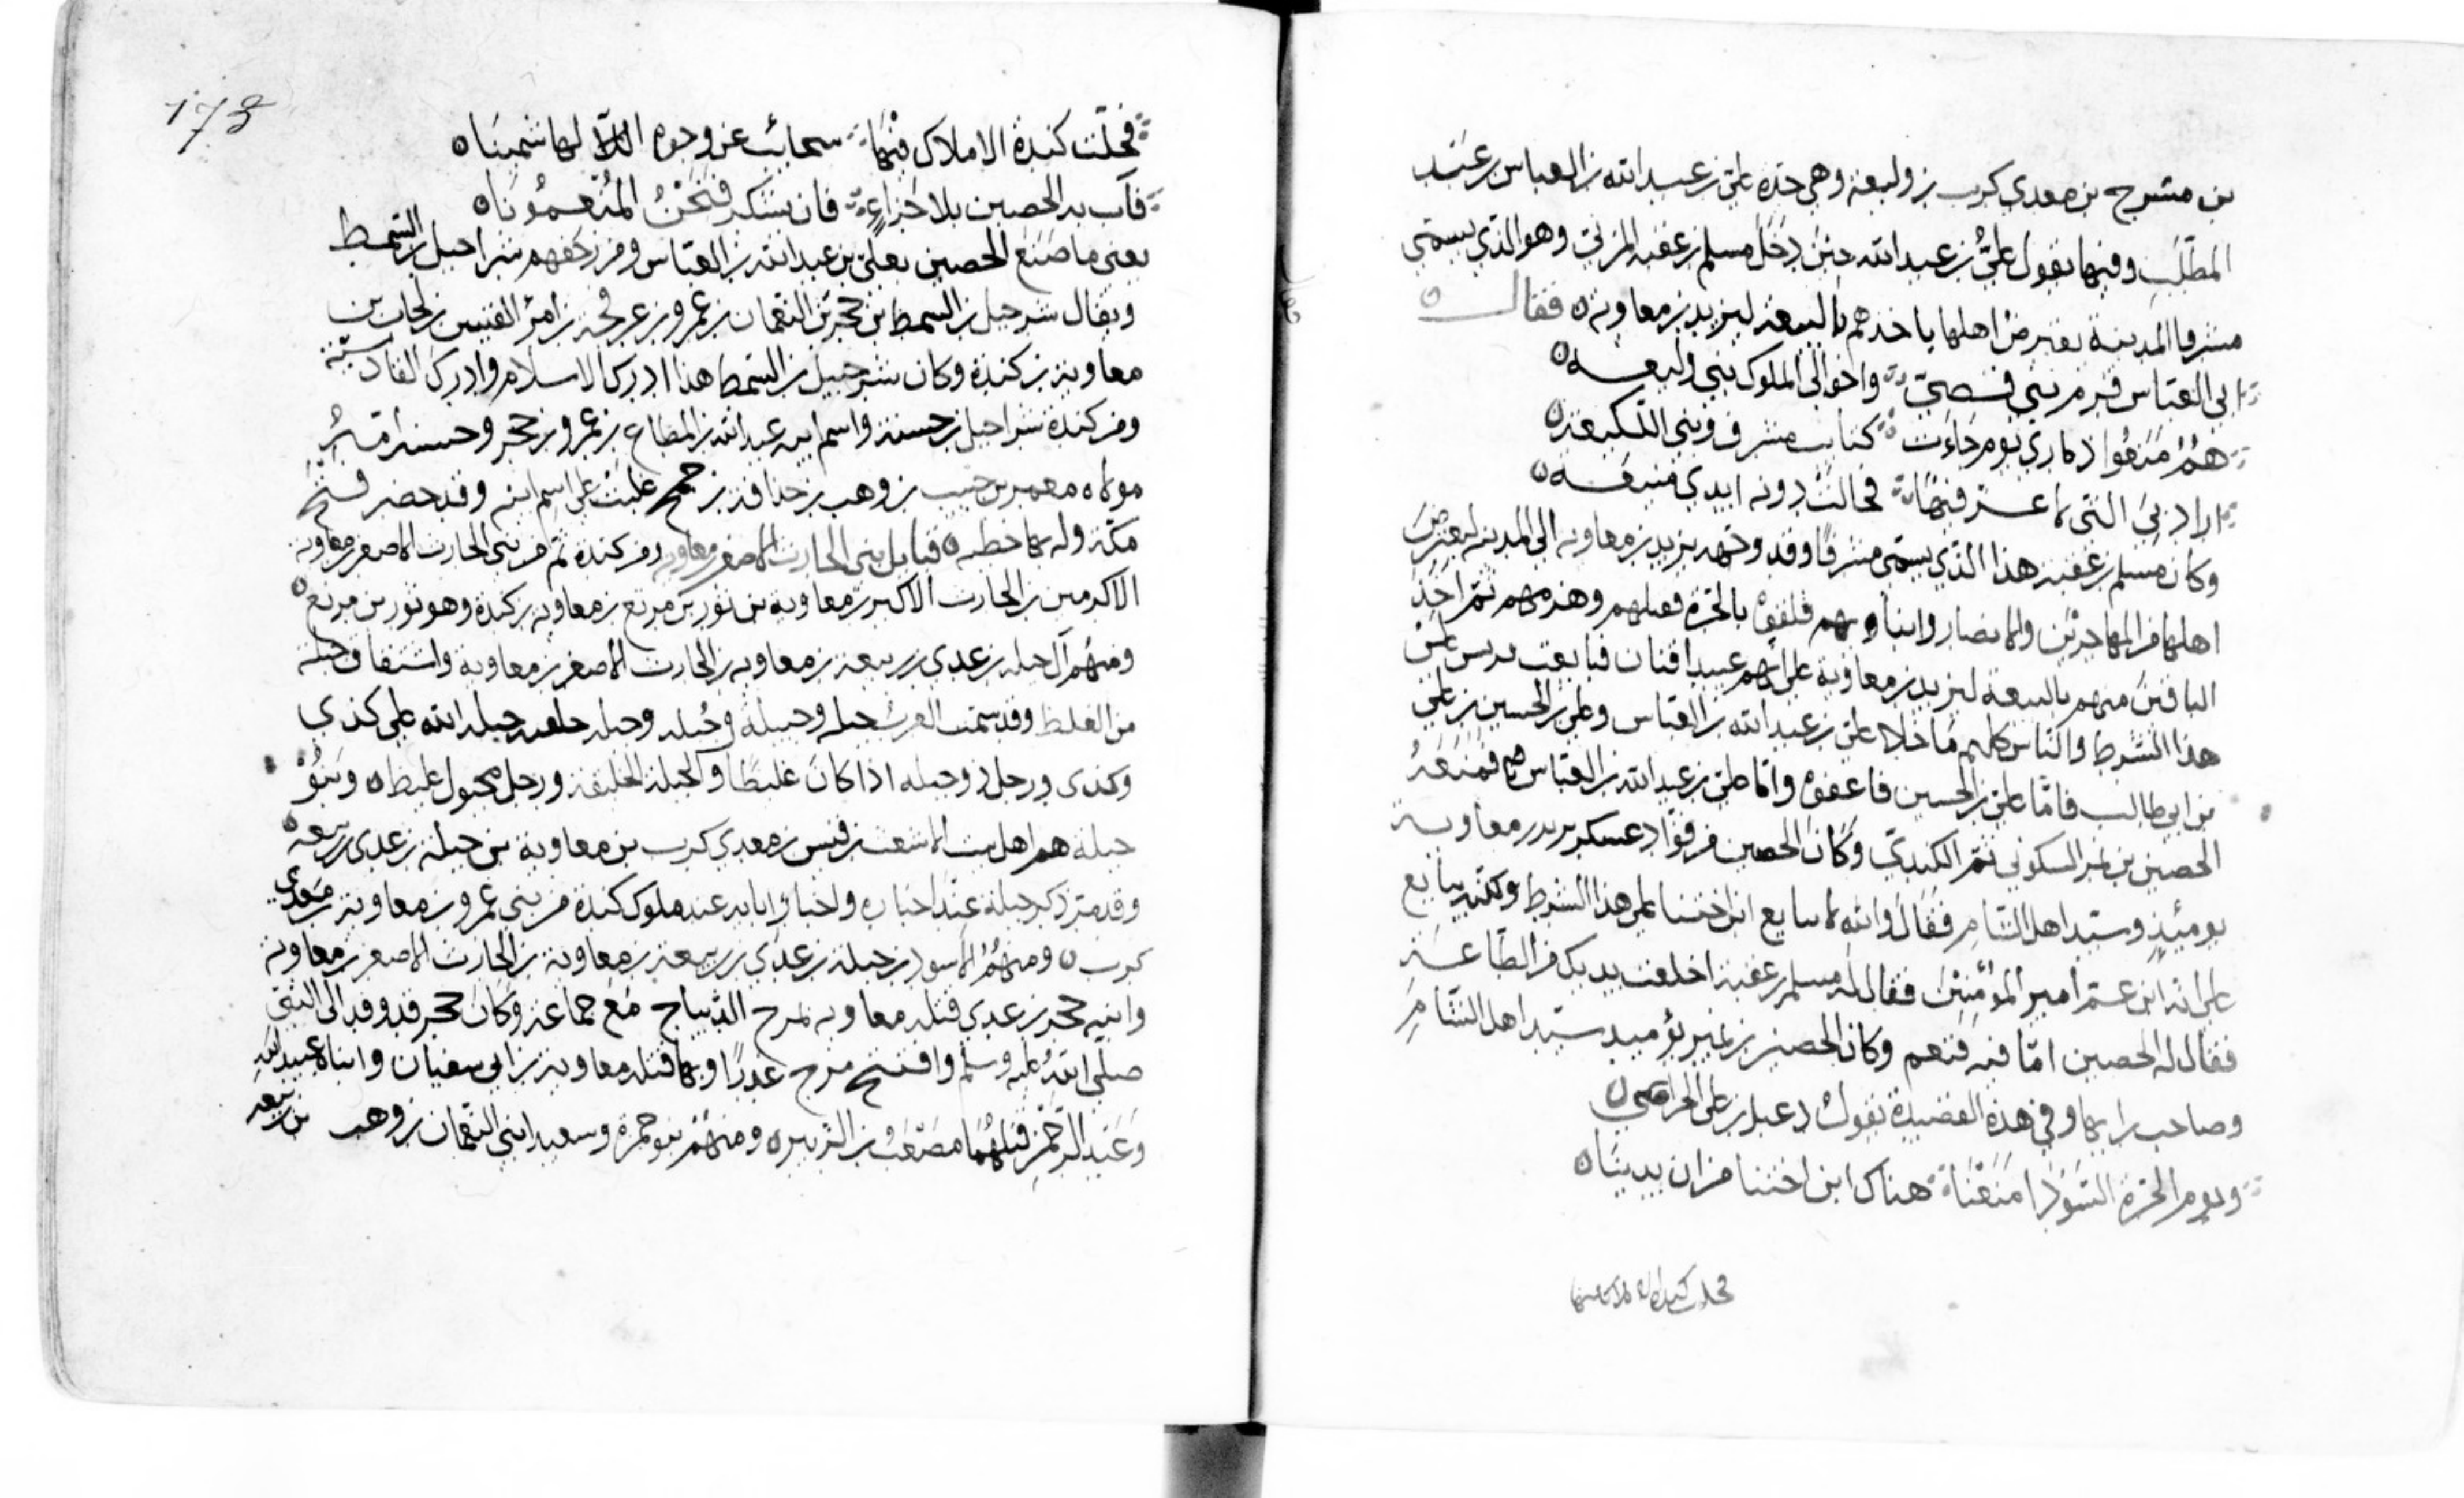 بن مشرح بن معدي كرب بن وليعة وهي جدة علي بن عبد الله بن العباس بن عبد
المطلب وفيها يقول علي بن عبد الله حين دخل مسلم بن عقبة المزني وهو الذي يسمى
مشرفا المدينة يعترض اهلها ياخذهم بالبيعة ليزيد بن معاوية فقال
ابي العباس قرم بني قصي واخوالي الملوك بني وليعه
هم منعوا ذماري يوم جاءت كتاب مشرف وبني اللكيعة
اراد بي التي لا عز فيها فحالت دونه ايدي منيعه
وكان مسلم بن عقبة هذا الذي يسمى مشرفا وقد وجهه يزيد بن معاوية الى المدينة ليعترض
اهلها من المهاجرين والانصار وابناوهم فلقوه بالحرة فقتلهم وهزمهم ثم اخذ
الباقين منهم بالبيعة ليزيد بن معاوية على انهم عبيد اقنان فبايعت على
هذا الشرط والناس كلهم ما خلا علي بن عبد الله بن العباس وعلي بن الحسين بن علي
بن ابي طالب فاما علي بن الحسين فاعفوه واما علي بن عبد الله بن العباس فمنعه
الحصين بن نمير السكوني ثم الكندي وكان الحصين من قواد عسكر يزيد بن معاوية
يومئذ وسيد اهل الشام فقال والله لا يبايع ابن اختنا على هذا الشرط ولكنه يبايع
على انه ابن عم امير المؤمنين فقال له مسلم بن عقبة اخلعت يديك من الطاعة
فقال له الحصين اما فيه فنعم وكان الحصين بن نمير يوميد سيد اهل الشام
وصاحب رايها وفي هذه القصيدة يقول دعبل بن علي الخزاعي
ويوم الحرة السودا منعنا هناك ابن اختنا من ان يدينا
فحلت كندة الاملاك فيها
173
فجلت كندة الاملاك فيها سحائب عن وجوه لها شمينا
فآب بد الحصين بلا جزاء فان يشكر فنحن المنعمونا
يعني ما صنع الحصين بعلي بن عبد الله بن العباس ومن شراحيل بن السمط
ويقال شرحبيل بن السمط بن حجر بن النعمان بن عمرو بن عرفجة بن امرؤ القيس بن الحارث بن
معاوية بن كندة وكان شرحبيل بن السمط هذا ادرك الاسلام وادرك القادسية
ومن كندة شراحيل بن حسنة واسم ابيه عبد الله بن المطاع بن عمرو بن حجر وحسنة امه
مولاة معمر بن حبيب بن وهب بن حذافة بن جمح غلبت على اسم ابيه وقد حضر فتح
مكة وله بها خطبه قبايل بني الحارث الاصغر بن معاوية ومن كندة ثم من بني الحارث الاصغر بن معاوية
الاكرمين بن الحارث الاكبر بن معاوية بن ثور بن مرتع بن معاوية بن كندة وهو ثور بن مرتع
ومنهم آل جبلة بن عدي بن ربيعة بن معاوية بن الحارث الاصغر بن معاوية واشتقاق جبلة
من الغلظ وقد سمت العرب جبله وجبيلة وجبله وجبل خلقه جبله الله على كذى
وكذى ورجل ذو جبله اذا كان غليظا والجبلة الخليقة ورجل مجبول غليظ وبنو
جبلة هم اهل بيت الاشعث بن قيس بن معدي كرب بن معاوية بن جبلة بن عدي بن ربيعه
وقد مر ذكر جبلة عند اخباره واخبار ابايه عند ملوك كندة من بني عمرو بن معاوية بن معدي
كرب ومنهم الاسود بن جبلة بن عدي بن ربيعة بن معاوية بن الحارث الاصغر بن معاوية
وابنه حجر بن عدي قتله معاوية بمرج الديباج مع جماعة وكان حجر قد وفد الى النبي
صلى الله عليه وسلم وافتتح مرج عذرا وبها قتله معاوية بن ابي سفيان وابناه عبيد الله
وعبد الرحمن قتلهما مصعب بن الزبير ومنهم بنو حمزة وسعيد ابني النعمان بن وهب بن ربيعه